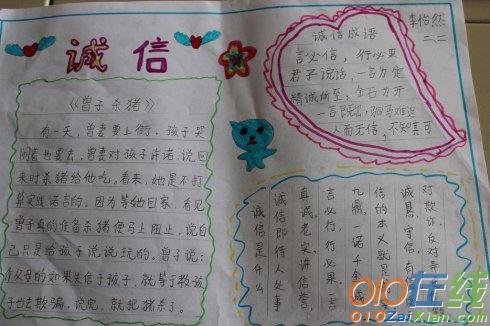 诚信
《曾子杀猪》
有一天，曾妻要上街，孩子哭
闹着也要去，曾妻对孩子许诺，说回
来时杀猪给他吃。看来，她是不打
算实践诺言的，因为等他回家，看见
曾子真的准备杀猪便马上阻止，说自
己只是给孩子说说玩的。曾子说：
父母的如果失信于孩子，就等于教孩
子也去欺骗。说完，就把猪杀了。
诚信成语
言必信，行必果
君子说话，一言为定
精诚所至，金石为开
一言既出，驷马难追
人而无信，不知其可
李怡然
二、二
诚信是什么
诚信即待人处事
真诚老实，讲信誉，
言必行，行必果，一言
九鼎，一诺千金
信的本义就是
诚息、守信，有
对欺诈、反对
010在线
010ZaiXian.com